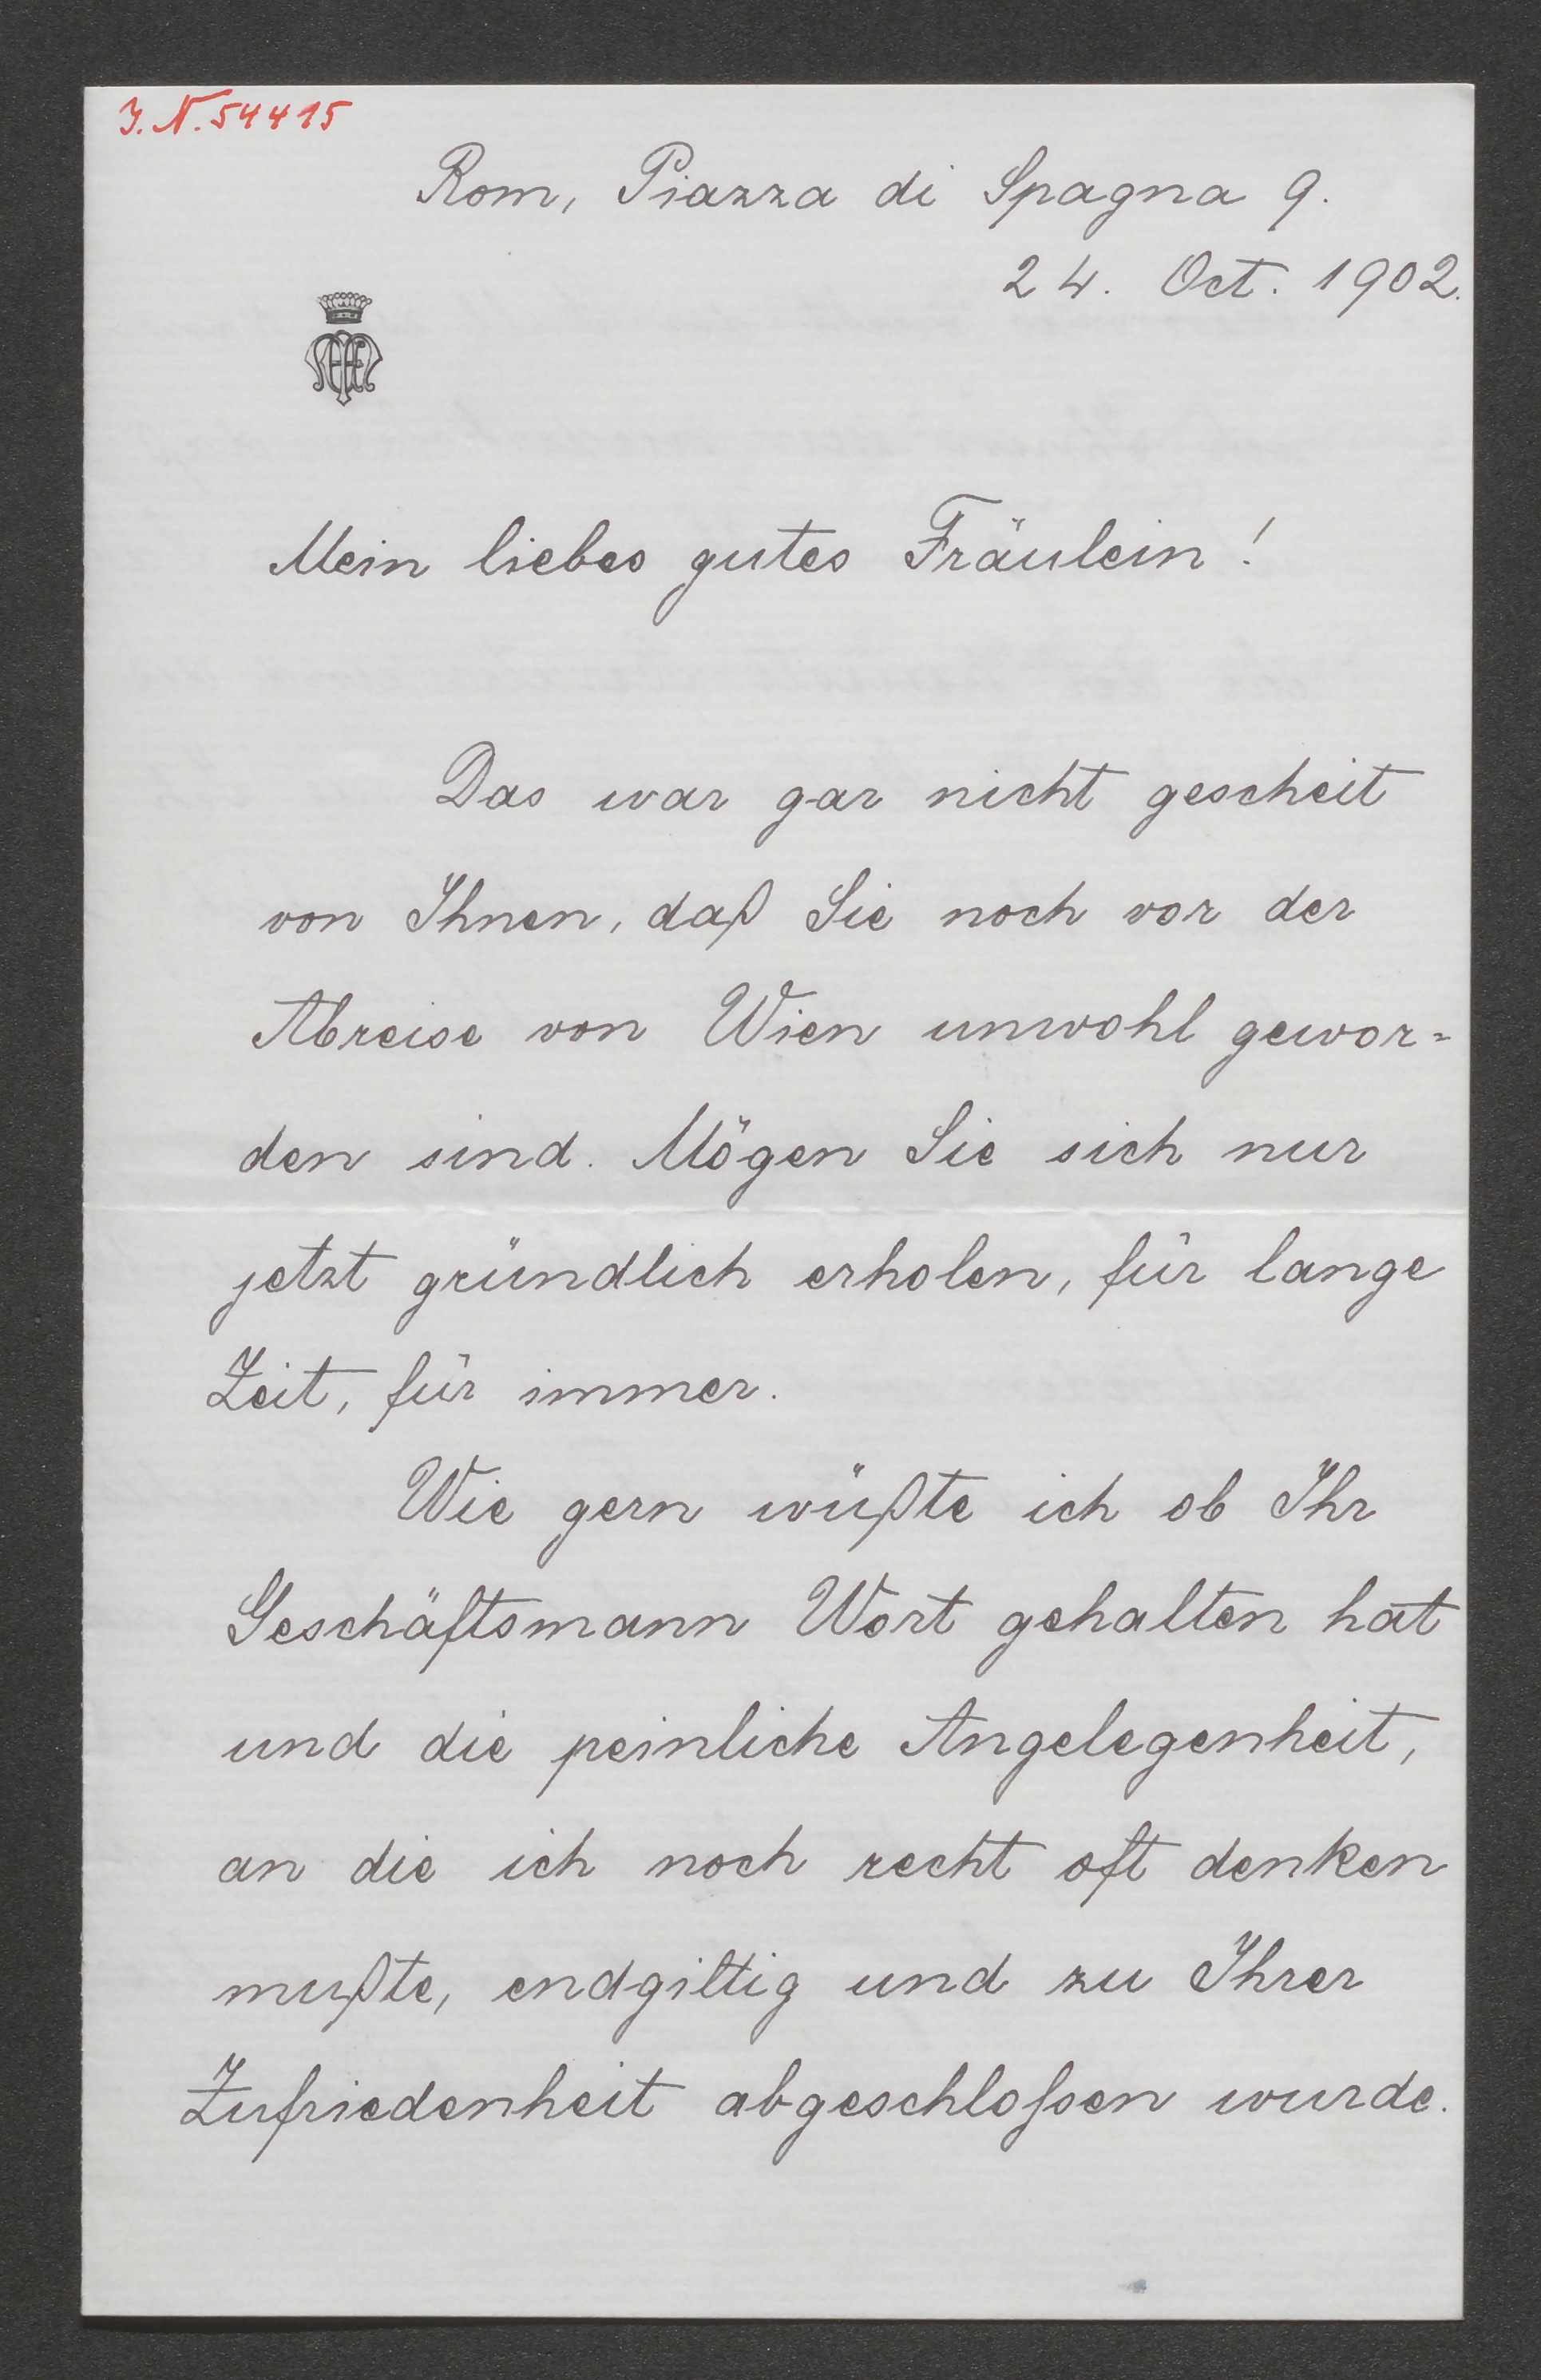 J. N. 54415
Rom, Piazza di Spagna 9.
24. Oct. 1902.
Mein liebes gutes Fräulein!
Das war gar nicht gescheit
von Ihnen, daß Sie noch vor der
Abreise von Wien unwohl gewor=
den sind. Mögen Sie sich nur
jetzt gründlich erholen, für lange
Zeit, für immer.
Wie gern wüßte ich ob Ihr
Geschäftsmann Wort gehalten hat
und die peinliche Angelegenheit,
an die ich noch recht oft denken
mußte, endgiltig und zu Ihrer
Zufriedenheit abgeschloſsen wurde.